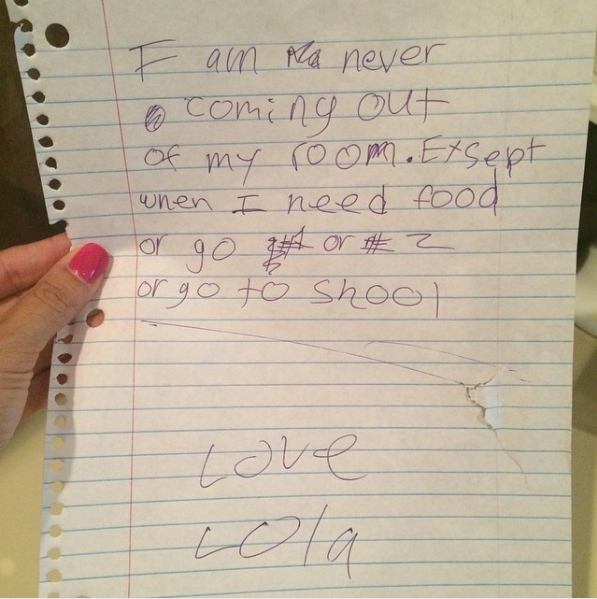 I am never
coming out
of my room. Exsept
when I need food
or go #1 or # 2
or go to shool
Love
Lola